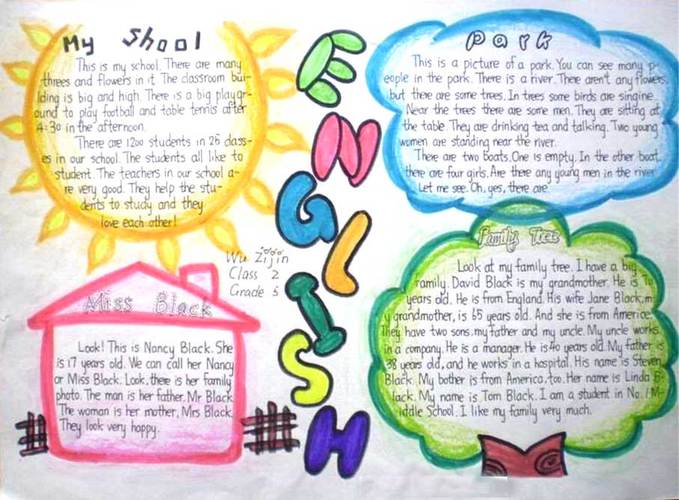 My Shool
This is my school. There are many
threes and flowers in it. The classroom bui-
lding is big and high. There is a big playgr-
ound to play football and table tennis after
4:30 in the afternoon.
There are 1200 students in 26 class-
es in our school. The students all like to
student. The teachers in our school a-
re very good. They help the stu-
dents to study and they
love each other!
ENGLISH
Park
This is a picture of a park. You can see many p-
eople in the park. There is a river. There aren't any flowers,
but there are some trees. In trees some birds are singine.
Near the trees there are some men. They are sitting at
the table. They are drinking tea and talking. Two young
women are standing near the river.
There are two boats. One is empty. In the other boat,
there are four girls. Are there any young men in the river
Let me see. Oh, yes, there are.
Wu Zijin
Class 2
Grade 5
Miss Black
Look! This is Nancy Black. She
is 17 years old. We can call her Nancy
or Miss Black. Look, there is her family
photo. The man is her father, Mr Black
The woman is her mother, Mrs Black.
They look very happy.
Family Tree
Look at my family tree. I have a big
family. David Black is my grandmother. He is 70
years old. He is from England. His wife Jane Black, m
y grandmother, is 65 years old. And she is from Americe.
They have two sons, my father and my uncle. My uncle works
in a company. He is a manager. He is 40 years old. My father is
38 years old, and he works in a hospital. His name is Steven
Black. My bother is from America, too. Her name is Linda B-
lack. My name is Tom Black. I am a student in No. 1 M-
iddle School. I like my family very much.